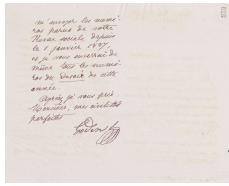 m'envoyer les numé-
ros parus de votre
Revue sociale depuis
le 1 janvier 1887
et je vous enverrai de
même tous les numé-
ros du Devoir de cette
année.
Agréez je vous prie
Monsieur, mes civilités
parfaites
Godin